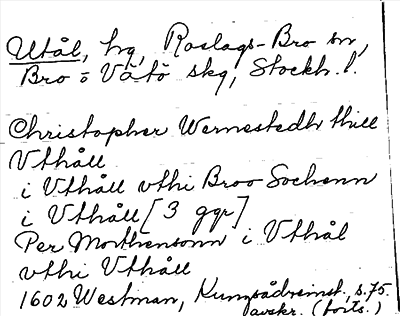 Utål, hg, Roslags-Bro sn,
Bro o Vätö skg, Stockh. l.
Christopher Wernestedh thill
Vthåll
i Vthåll vthi Broo Sochenn
i Vthåll [3 ggr]
Per Morthensonn i Vthål
vthi Vthåll
1602 Westman, s. 75.
avskr. (forts.)